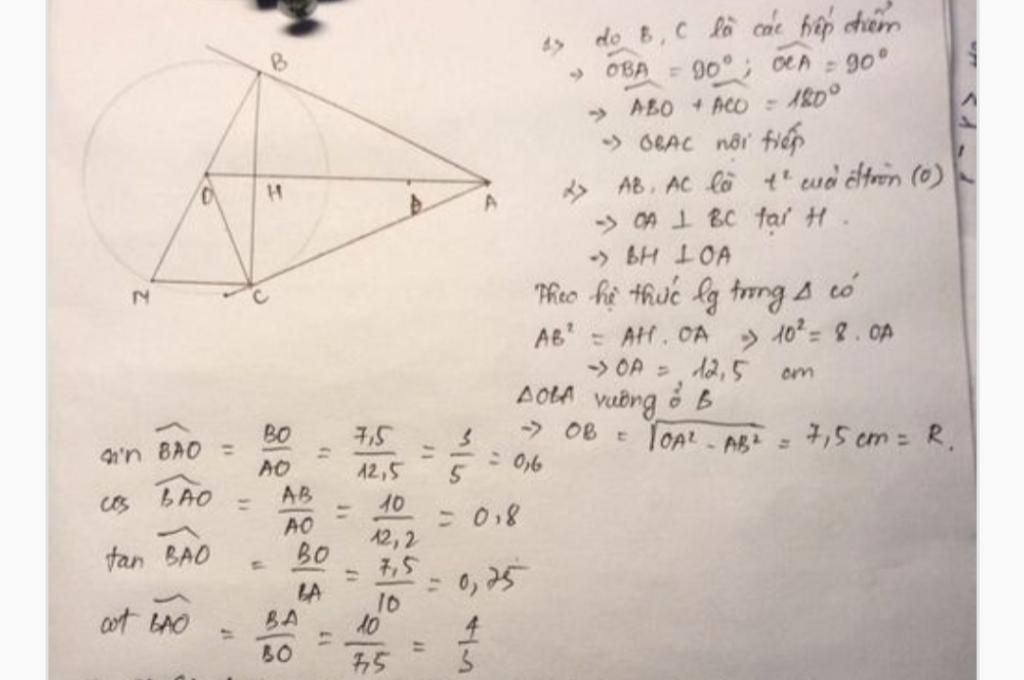 B
O
H
D
A
M
C
1> do B, C là các tiếp điểm
→ OBA = 90°; OCA = 90°
→ ABO + ACO = 180°
→ OBAC nội tiếp
2> AB, AC là t² của đtròn (O)
→ OA ⊥ BC tại H.
→ BH ⊥ OA
Theo hệ thức lg trong Δ có
AB² = AH. OA → 10² = 8. OA
→ OA = 12,5 cm
ΔOBA vuông ở B
→ OB = √OA² - AB² = 7,5 cm = R.
sin BAO = BO/AO = 7,5/12,5 = 3/5 = 0,6
cos BAO = AB/AO = 10/12,2 = 0,8
tan BAO = BO/BA = 7,5/10 = 0,25
cot BAO = BA/BO = 10/7,5 = 4/3